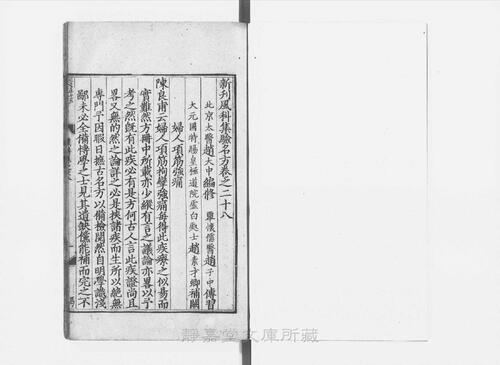 新刊風科集驗名方卷之二十八
北京太醫趙大中編修
覃懷儒醫趙子中傳習
大元國特賜皇極道院虛白處士趙素才卿補闕
婦人項筋強痛
陳良甫云婦人項筋拘攣強痛毎得此疾療之似昜而
實難然方冊中所載亦少縱有言之議論亦畧以予
考之然既有此疾必有是方何古人言此疾證尚且
畧又無的然之論詳之必是挾諸疾而生所以絶無
專門予因暇日摭古名方以備檢閱然自明學識淺
鄙未必全備傍學之士見其遺缺儻能補而完之不
靜嘉堂文庫所藏